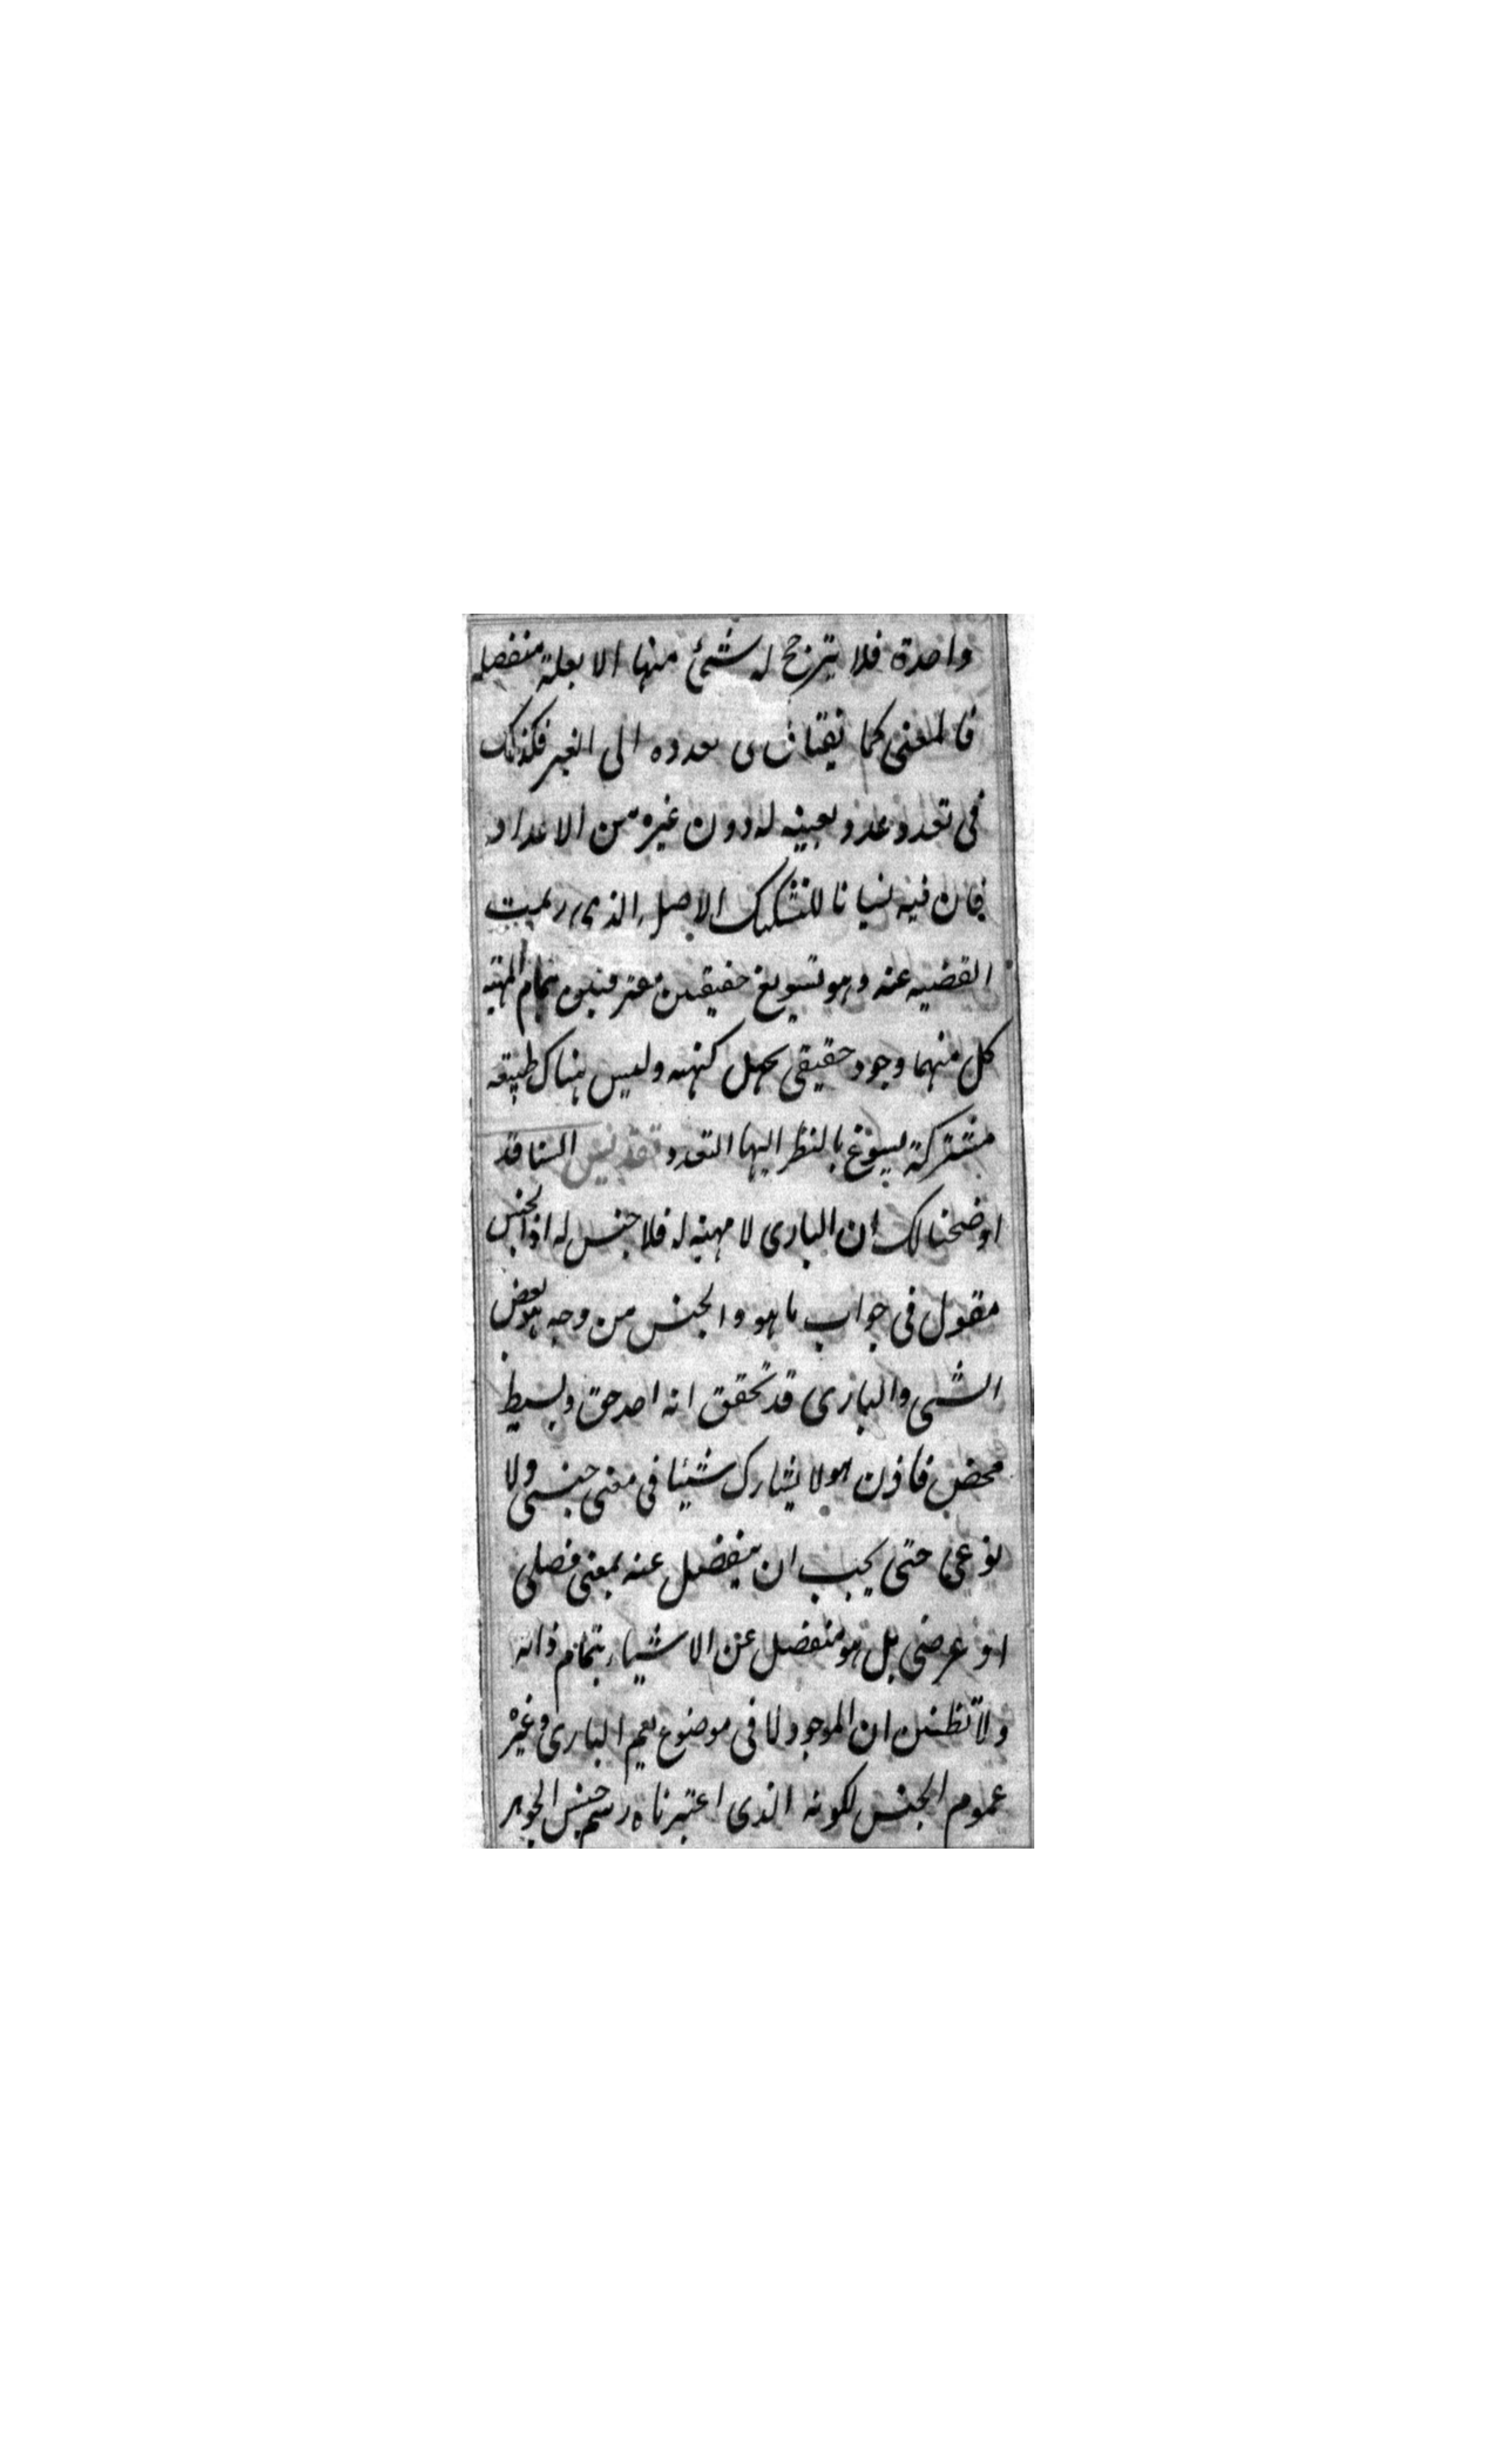 واحدة فلا يترجح له شئ منها الا بعلة منفصله
فالمعنى كما يفتاق فى تعدده الى الغير فكذلك
فى تعدد عدد بعينه له دون غيره من الاعداد
فان فيه نسيانا للتشكيك الاصل الذى رميت
القضيه عنه وهو تسويغ حقيقتين مفترقتين بتمام المهية
كل منهما وجود حقيقى يجهل كنهه وليس هناك طبيعه
مشتركة يسوغ بالنظر اليها التعدد تقديس السنا قد
اوضحنا لك ان البارى لا مهية له فلا جنس له اذ الجنس
مقول فى جواب ما هو والجنس من وجه هو بعض
الشى والبارى قد تحقق انه احد حق وبسيط
محض فاذن هو لا يشارك شيئا فى معنى جنسى ولا
نوعى حتى يجب ان ينفصل عنه بمعنى فصلى
او عرضى بل هو منفصل عن الاشياء بتمام ذاته
ولا تظنن ان الموجود لا فى موضوع يعم البارى وغيره
عموم الجنس لكونه الذى اعتبرناه رسم جنس الجوهر